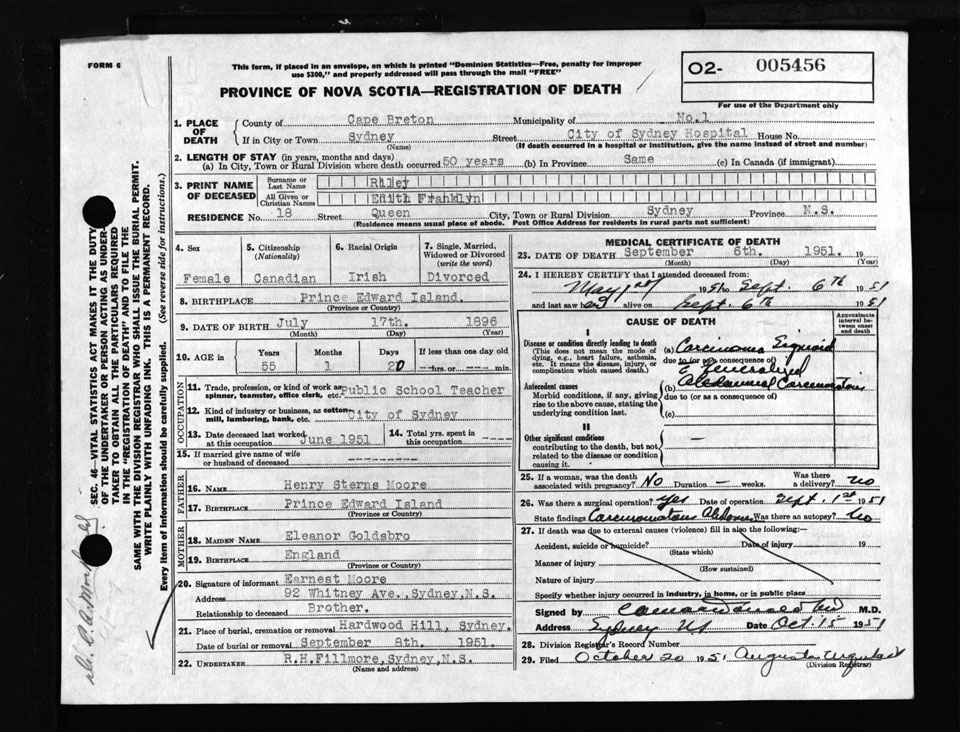 FORM 6
This form, if placed in an envelope, on which is printed "Dominion Statistics—Free, penalty for improper
use $300," and properly addressed will pass through the mail "FREE"
PROVINCE OF NOVA SCOTIA—REGISTRATION OF DEATH
02- 005456
For use of the Department only
1. PLACE OF DEATH
County of Cape Breton Municipality of No.1
If in City or Town Sydney Street City of Sydney Hospital House No.
(Name) (If death occurred in a hospital or institution, give the name instead of street and number)
2. LENGTH OF STAY (in years, months and days)
(a) In City, Town or Rural Division where death occurred 50 years (b) In Province Same (c) In Canada (if immigrant)
3. PRINT NAME OF DECEASED
Surname or Last Name Riley
All Given or Christian Names Edith Franklyn
RESIDENCE No. 18 Street Queen City, Town or Rural Division Sydney Province N.S.
(Residence means usual place of abode. Post Office Address for residents in rural parts not sufficient)
4. Sex
Female
5. Citizenship (Nationality)
Canadian
6. Racial Origin
Irish
7. Single, Married, Widowed or Divorced (write the word)
Divorced
8. BIRTHPLACE Prince Edward Island.
(Province or Country)
9. DATE OF BIRTH July 17th. 1896
(Month) (Day) (Year)
10. AGE in
Years Months Days If less than one day old
55 1 20 hrs. or min.
OCCUPATION
11. Trade, profession, or kind of work as spinner, teamster, office clerk, etc. Public School Teacher
12. Kind of industry or business, as cotton mill, lumbering, bank, etc. City of Sydney
13. Date deceased last worked at this occupation June 1951
14. Total yrs. spent in this occupation ----
15. If married give name of wife or husband of deceased ---------
FATHER
16. NAME Henry Sterns Moore
17. BIRTHPLACE Prince Edward Island
(Province or Country)
MOTHER
18. MAIDEN NAME Eleanor Goldsbro
19. BIRTHPLACE England
(Province or Country)
20. Signature of informant Earnest Moore
Address 92 Whitney Ave.,Sydney,N.S.
Relationship to deceased Brother.
21. Place of burial, cremation or removal Hardwood Hill, Sydney.
Date of burial or removal September 8th. 1951.
22. UNDERTAKER R.H.Fillmore,Sydney,N.S.
(Name and address)
MEDICAL CERTIFICATE OF DEATH
23. DATE OF DEATH September 6th. 1951. 19
(Month) (Day) (Year)
24. I HEREBY CERTIFY that I attended deceased from:
May 1st 1951 to Sept. 6th 1951
and last saw her alive on Sept. 6th 1951
CAUSE OF DEATH
Approximate interval between onset and death
I
Disease or condition directly leading to death
(This does not mean the mode of dying, e.g., heart failure, asthenia, etc. It means the disease, injury, or complication which caused death.)
(a) Carcinoma Sigmoid
due to (or as a consequence of)
c̄ generalized
(b) Abdominal Carcinomatosis
due to (or as a consequence of)
(c)
Antecedent causes
Morbid conditions, if any, giving rise to the above cause, stating the underlying condition last.
II
Other significant conditions
contributing to the death, but not related to the disease or condition causing it.
—
25. If a woman, was the death associated with pregnancy? No Duration — weeks. Was there a delivery? no
26. Was there a surgical operation? Yes Date of operation Sept. 1st 1951
State findings Carcinomatous Abdomen Was there an autopsy? No
27. If death was due to external causes (violence) fill in also the following:—
Accident, suicide or homicide? Date of injury 19
(State which)
Manner of injury
(How sustained)
Nature of injury
Specify whether injury occurred in industry, in home, or in public place
Signed by M.D.
Address Sydney NS Date Oct. 15 1951
28. Division Registrar's Record Number
29. Filed October 20 1951 Augusta Urquhart
(Division Registrar)
SEC. 46—VITAL STATISTICS ACT MAKES IT THE DUTY
OF THE UNDERTAKER OR PERSON ACTING AS UNDERTAKER TO OBTAIN ALL THE PARTICULARS REQUIRED
IN THE "REGISTRATION OF DEATH" AND TO FILE THE
SAME WITH THE DIVISION REGISTRAR WHO SHALL ISSUE THE BURIAL PERMIT.
WRITE PLAINLY WITH UNFADING INK. THIS IS A PERMANENT RECORD.
Every item of information should be carefully supplied. (See reverse side for instructions.)